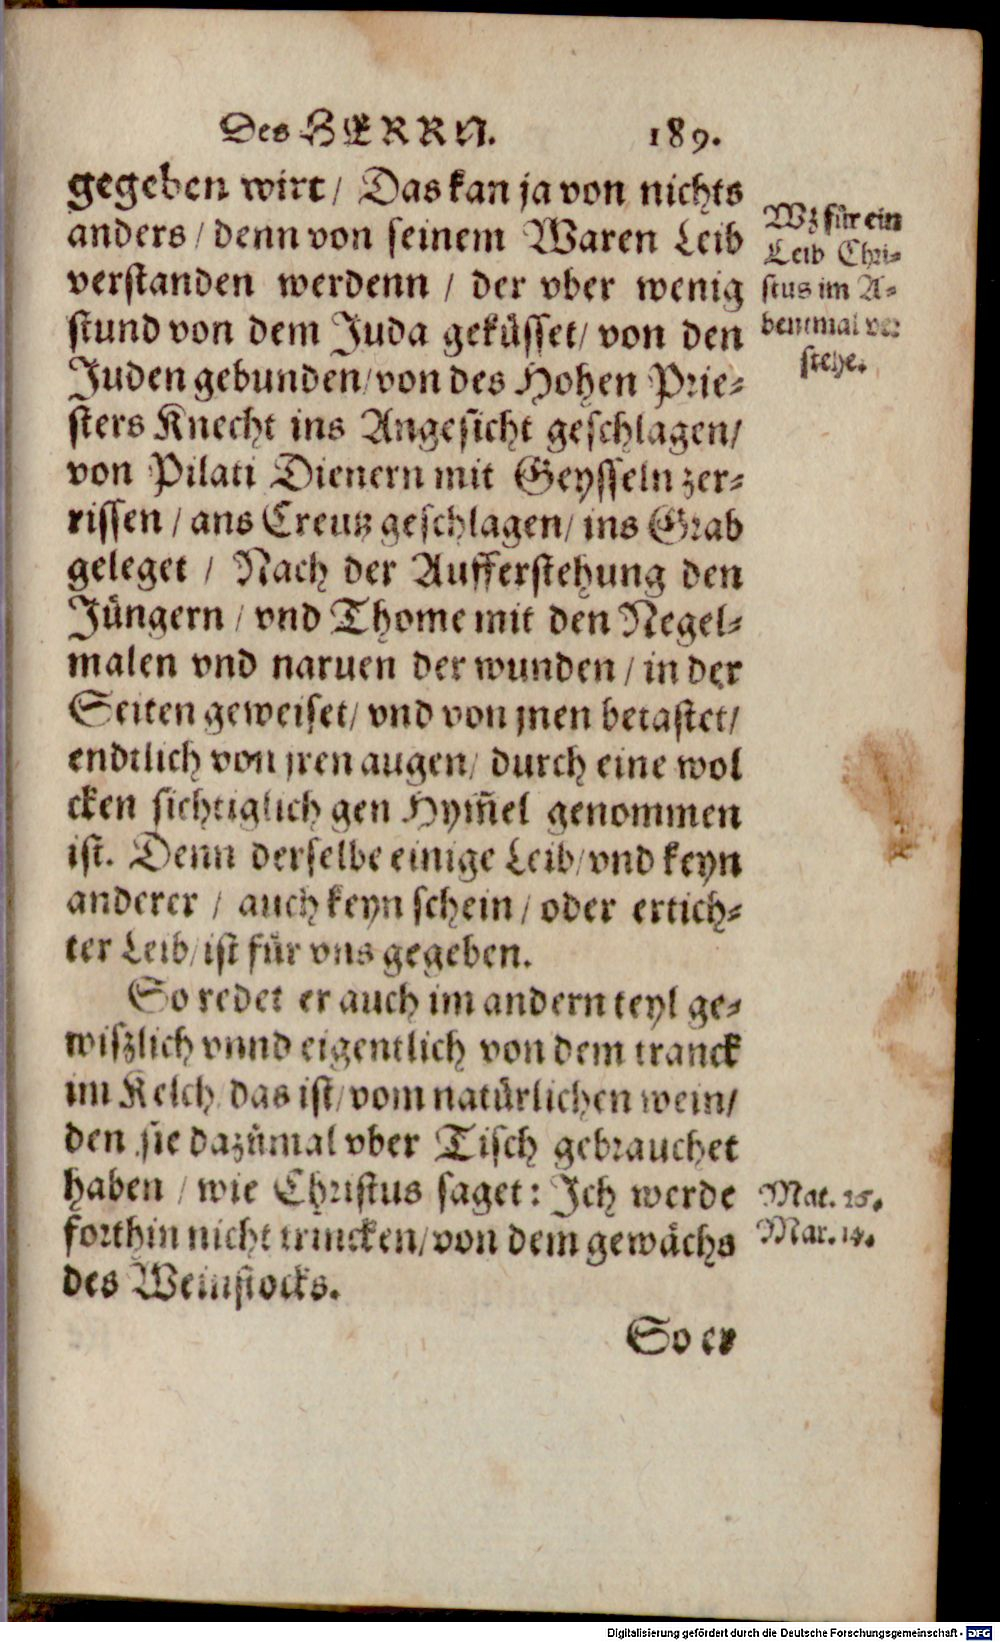 Des HERRN. 189.
gegeben wirt / Das kan ja von nichts
anders / denn von seinem Waren Leib
verstanden werdenn / der vber wenig
stund von dem Juda geküsset / von den
Juden gebunden / von des Hohen Prie=
sters Knecht ins Angesicht geschlagen /
von Pilati Dienern mit Geysseln zer=
rissen / ans Creutz geschlagen / ins Grab
geleget / Nach der Aufferstehung den
Jüngern / vnd Thome mit den Negel=
malen vnd naruen der wunden / in der
Seiten geweiset / vnd von jnen betastet /
endtlich von jren augen / durch eine wol
cken sichtiglich gen Hym̃el genommen
ist. Denn derselbe einige Leib / vnd keyn
anderer / auch keyn schein / oder ertich=
ter Leib / ist für vns gegeben.
So redet er auch im andern teyl ge=
wiszlich vnnd eigentlich von dem tranck
im Kelch / das ist / vom natürlichen wein /
den sie dazůmal vber Tisch gebrauchet
haben / wie Christus saget: Ich werde
forthin nicht trincken / von dem gewächs
des Weinstocks.
So er
Wz für ein
Leib Chri=
stus im A=
bentmal ver
stehe.
Mat. 26.
Mar. 14.
Digitalisierung gefördert durch die Deutsche Forschungsgemeinschaft - DFG